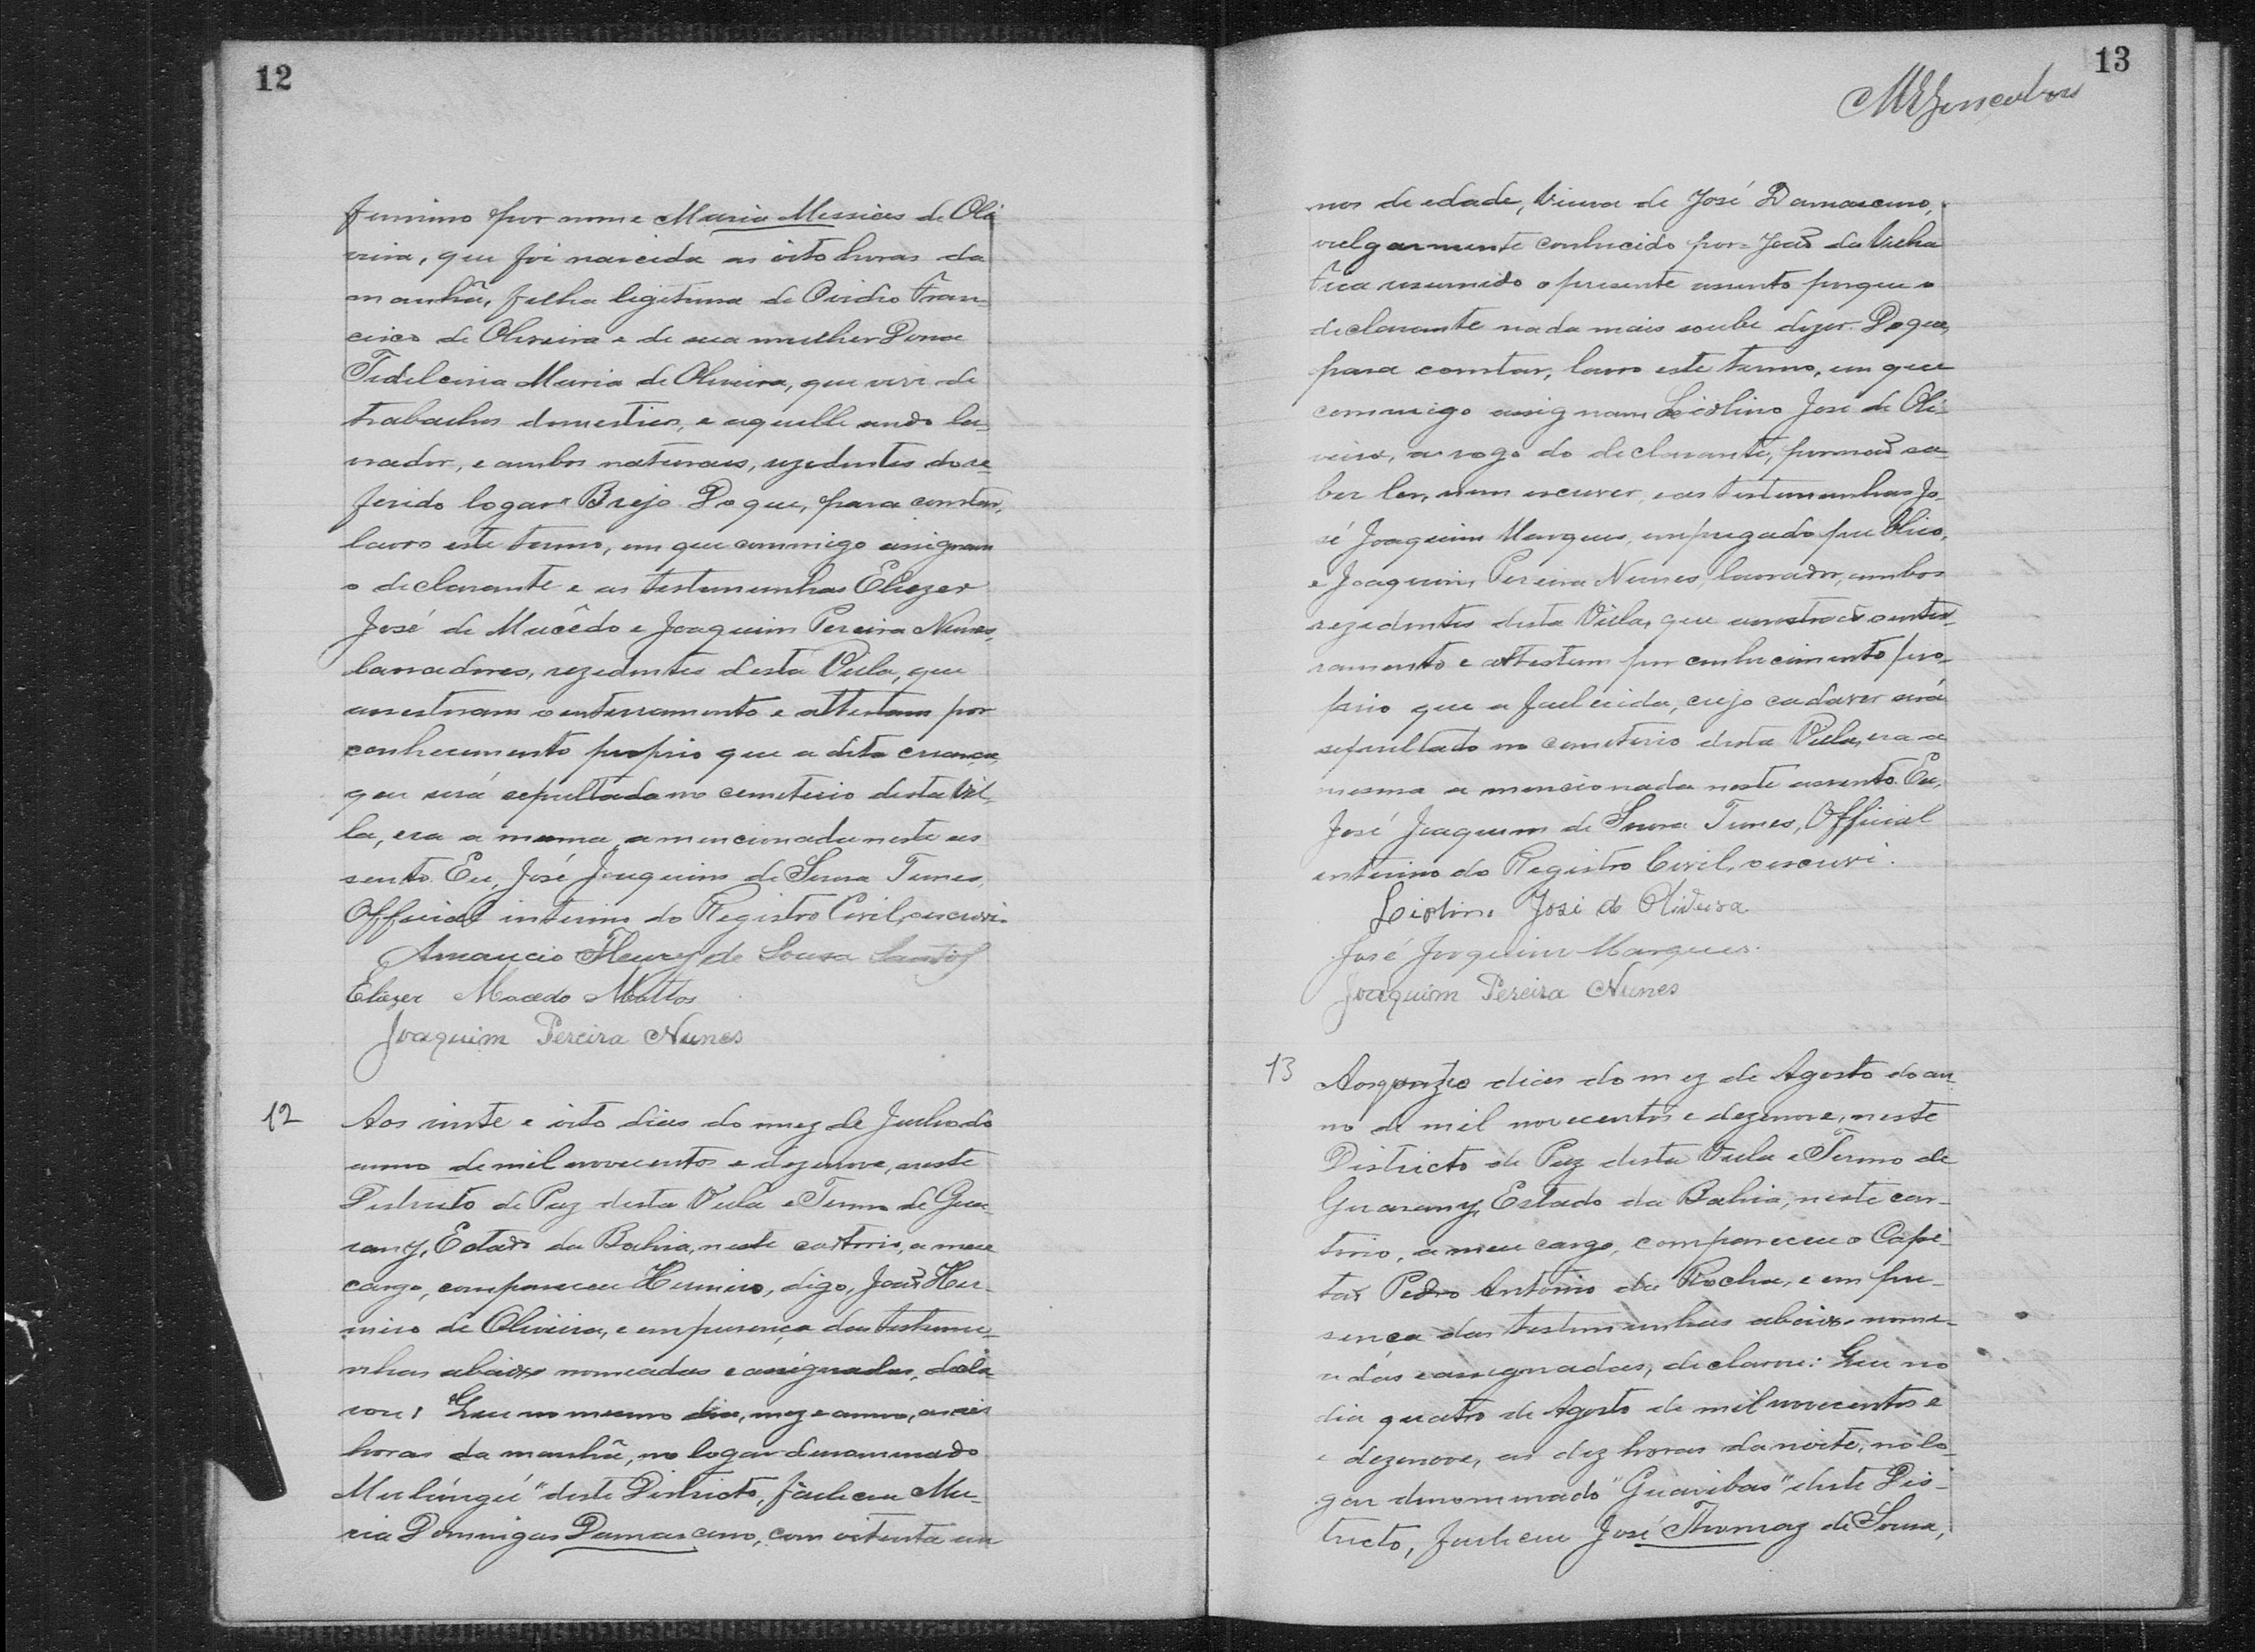 12
feminino por nome Maria Messias de Oli
veira, que foi nascida as oito horas da
manhã, filha legitima de Ovidio Fran-
cisco de Oliveira e de sua mulher Dona
Fidelcina Maria de Oliveira, que vive de
trabalhos domesticos, e aquelle sendo la-
vrador, e ambos naturaes, rezedentes do re-
ferido logar "Brejo. Do que, para constar,
lavro este termo, em que commigo assignam
o declarante e as testemunhas Eliezer
José de Macêdo e Joaquim Pereira Nunes,
lavradores, rezedentes desta Villa, que
assestiram o enterramento e attestam por
conhecimento proprio que a dita criança,
que será sepultada no cemeterio desta Vil-
la, era a mesma a mencionada neste as
sento. Eu, José Joaquim de Sousa Tunes,
Official interino do Registro Civil, o escrevi.
Amancio Fleury de Sousa Santos
Eliezer Macedo Mattos
Joaquim Pereira Nunes
12
Aos vinte e oito dias do mez de Julho do
anno de mil novecentos e dezenove, neste
Districto de Paz desta Villa e Termo de Gua-
rany, Estado da Bahia, neste cartorio, a meu
cargo, compareceu Hermiro, digo, João Her-
miro de Oliveira, e em presença das testemu-
nhas abaixo nomeadas e assignadas, decla
rou: Que no mesmo dia, mez e anno, as seis
horas da manhã, no logar denominado
Mulúngú" deste Districto, falleceu Ma-
ria Domingas Damasceno, com oitenta an
13
nos de edade, viuva de José Damasceno,
vulgarmente conhecido por= João da Velha
Fica resumido o presente assento porque o
declarante nada mais soube dizer. Do que,
para constar, lavro este termo, em que
commigo assignam Liolino José de Oli-
veira, a rogo do declarante, por não sa-
ber ler, nem escrever, e as testemunhas Jo-
sé Joaquim Marques, empregado publico,
e Joaquim Pereira Nunes, lavrador, ambos
rezedentes desta Villa, que assestirão o enter-
ramento e attestam por conhecimento pro-
prio que a fallecida, cujo cadaver será
sepultado no cemeterio desta Villa, era a
mesma a mencionada neste assento. Eu,
José Joaquim de Sousa Tunes, Official
enterino do Registro Civil, o escrevi.
Liolino José de Oliveira
José Joaquim Marques.
Joaquim Pereira Nunes
13
Aos quinze dias do mez de Agosto do an
no de mil novecentos e dezenove, neste
Districto de Paz desta Villa e Termo de
Guarany, Estado da Bahia, neste car-
torio, a meu cargo, compareceu o Capi-
tão Pedro Antonio da Rocha, e em pre-
sença das testemunhas abaixo nome-
adas e assignadas, declarou: Que no
dia quatro de Agosto de mil novecentos e
e dezenove, as dez horas da noite, no lo-
gar denominado "Guaribas" deste Dis-
tricto, falleceu José Thomaz de Sousa,